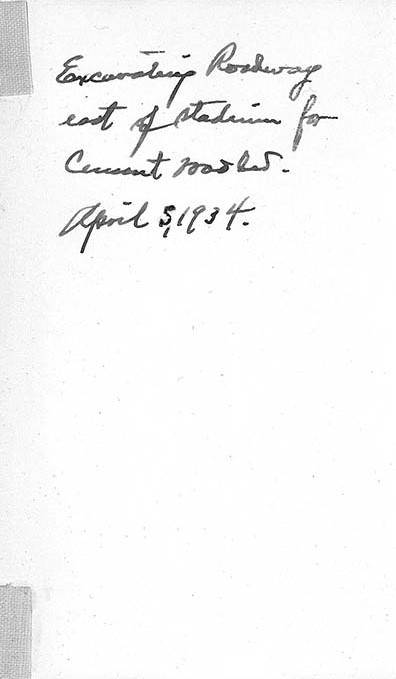 Excavating Roadway
east of stadium for
Cement road bed.
April 5, 1934.